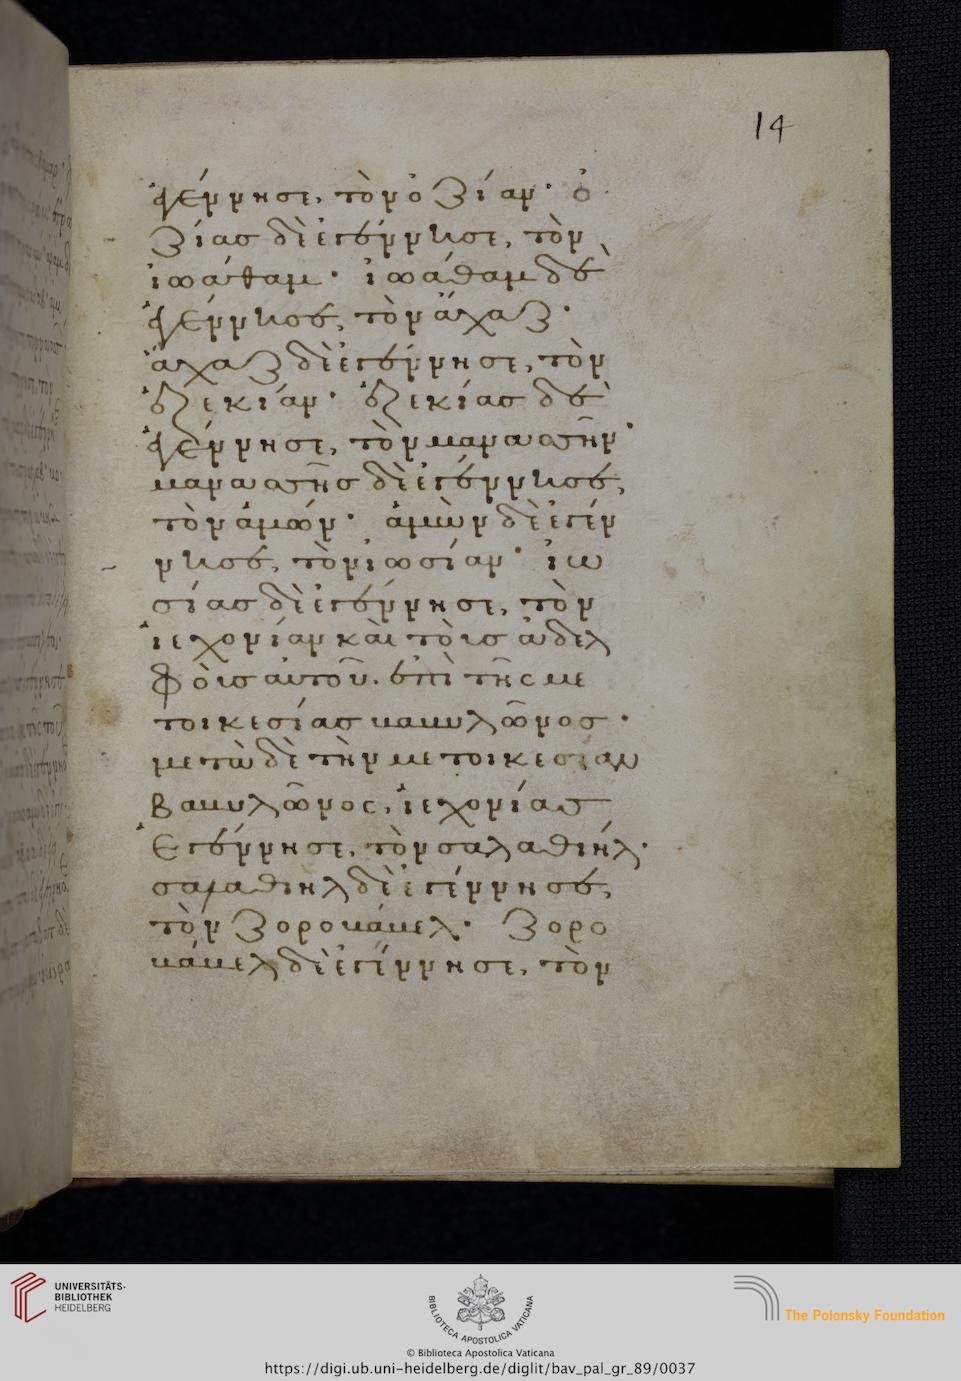 14
γέννησε, τὸν ὀζίαν· ὀ
ζίασ δὲ ἐγέννησε, τὸν
ἰωάθαμ· ἰωάθαμ δὲ
γέννησε, τὸν ἄχαζ·
ἄχαζ δὲ ἐγέννησε, τὸν
ἐζεκίαν· ἐζεκίασ δὲ
γέννησε, τὸν μανασῆν·
μανασῆσ δὲ ἐγέννησε,
τὸν ἀμών· ἀμὼν δὲ ἐγέν
νησε, τὸν ἰωσίαν· ἰω
σίασ δὲ ἐγέννησε, τὸν
ἰεχονίαν καὶ τὸισ ἀδελ
φὸισ ἀυτοῦ. ἐπὶ τῆς με
τοικεσίασ βαβυλῶνοσ·
μετὰ δὲ τὴν μετοικεσίαν
Βαβυλῶνος, ἰεχονίασ
Εγέννησε, τὸν σαλαθιήλ·
σαλαθιηλ δὲ ἐγέννησε,
τὸν ζοροβάβελ· ζορο
βάβελ δὲ ἐγέννησε, τὸν
UNIVERSITÄTS-
BIBLIOTHEK
HEIDELBERG
BIBLIOTECA APOSTOLICA VATICANA
© Biblioteca Apostolica Vaticana
The Polonsky Foundation
https://digi.ub.uni-heidelberg.de/diglit/bav_pal_gr_89/0037